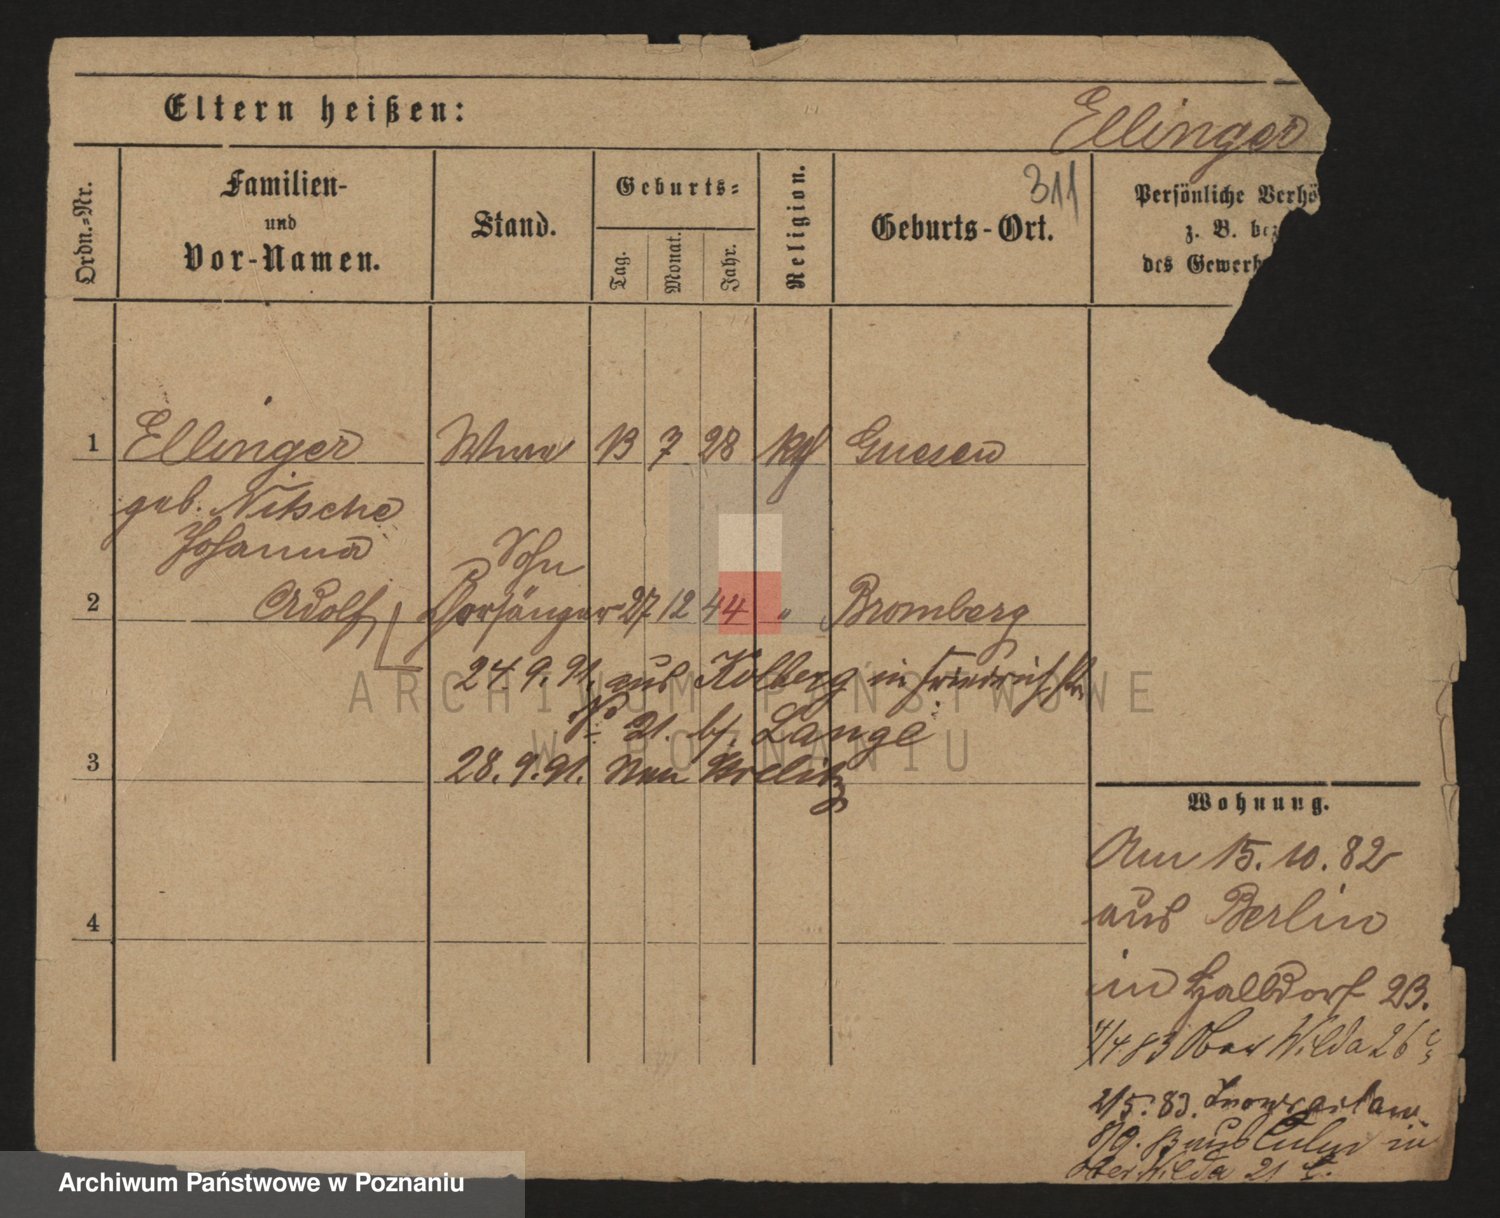 Eltern heißen:
Ellinger
311
Ordn.-Nr.
Familien-
und
Vor-Namen.
Stand.
Geburts-
Tag.
Monat.
Jahr.
Religion.
Geburts-Ort.
Persönliche Verhö
z. B. bez
des Gewerb
1 Ellinger 13 7 28 Gnesen
geb. Nitsche
Johanna
Sohn
2 Adolf Chorsänger 27 12 44 " Bromberg
24. 9. 91. aus Kolberg in Friedrichstr.
No 21. bf. Lange
3 28. 9. 91. Neu Strelitz
4
Wohnung.
Am 15. 10. 82
aus Berlin
in Halbdorf 23.
4/4 83 Ober Wilda 26
2/5. 83.
8/9. 83 aus Culm in
Ober Wilda 21
ARCHIWUM PAŃSTWOWE
W POZNANIU
Archiwum Państwowe w Poznaniu